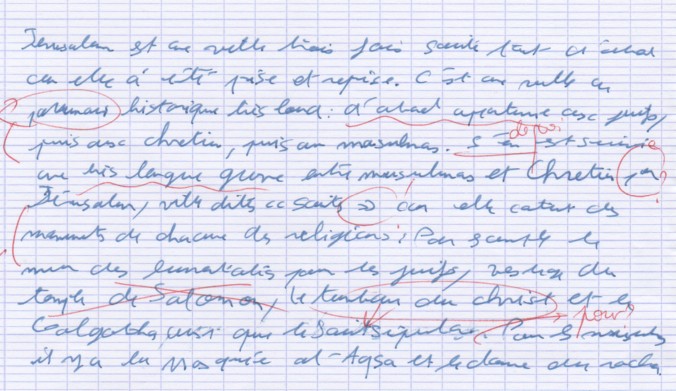 Jérusalem est une ville trois fois sainte tout d'abord
car elle à été prise et reprise. C'est une ville au
historique très lourd : d'abord apartenue aux juifs,
puis aux chrétien, puis au musulmans. S'en est suivie
une très longue guerre entre musulmans et Chrétien
Jérusalem, ville dites sainte => car elle contient des
monuments de chacune des religions : Par exemple le
mur des lamentations pour les juifs, vestige du
temple de Salomon, le tombeau du christ et le
Golgotha, ainsi que le Saint sépulcre. Pour pour
il y a la Mosquée al-Aqsa et le dome du rocher